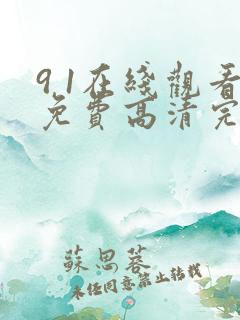 91在綫觀看
免費高清完
蘇思蓉
未經同意禁止轉載